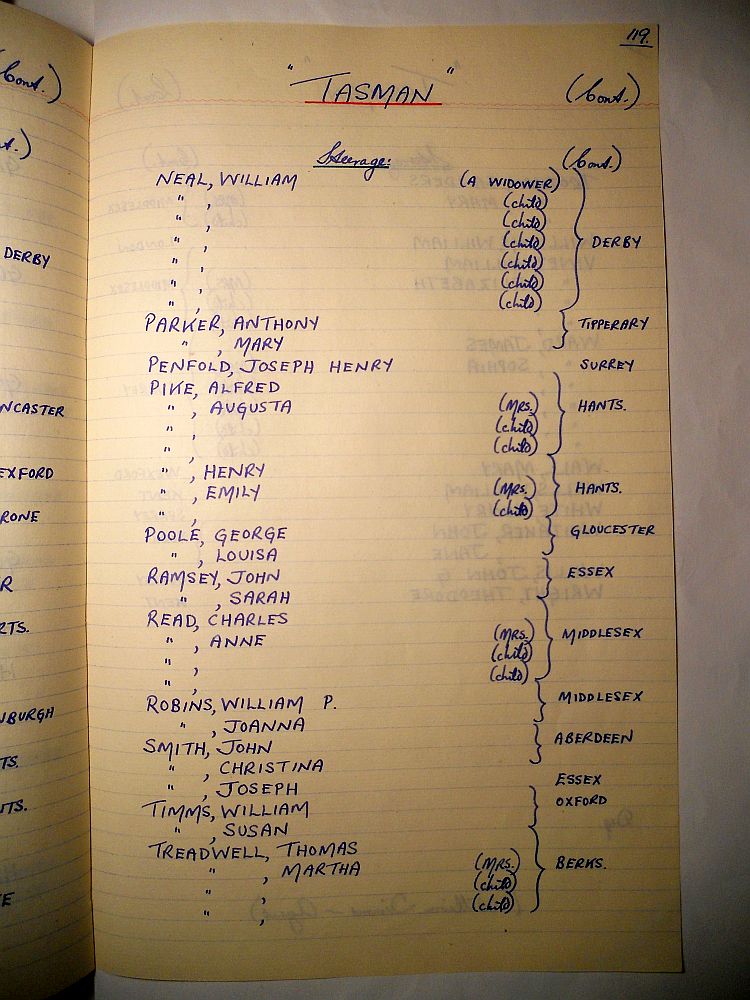 119.
" TASMAN " (Cont.)
Steerage: (Cont.)
NEAL, WILLIAM (A WIDOWER)
" , (child)
" , (child)
" , (child) DERBY
" , (child)
" , (child)
" , (child)
PARKER, ANTHONY TIPPERARY
" , MARY
PENFOLD, JOSEPH HENRY SURREY
PIKE, ALFRED
" , AUGUSTA (MRS.) HANTS.
" , (child)
" , (child)
" , HENRY
" , EMILY (MRS.) HANTS.
" , (child)
POOLE, GEORGE GLOUCESTER
" , LOUISA
RAMSEY, JOHN ESSEX
" , SARAH
READ, CHARLES
" , ANNE (MRS.) MIDDLESEX
" , (child)
" , (child)
ROBINS, WILLIAM P. MIDDLESEX
" , JOANNA
SMITH, JOHN ABERDEEN
" , CHRISTINA
" , JOSEPH ESSEX
TIMMS, WILLIAM OXFORD
" , SUSAN
TREADWELL, THOMAS
" , MARTHA (MRS.) BERKS.
" , (child)
" , (child)
(Cont.)
DERBY